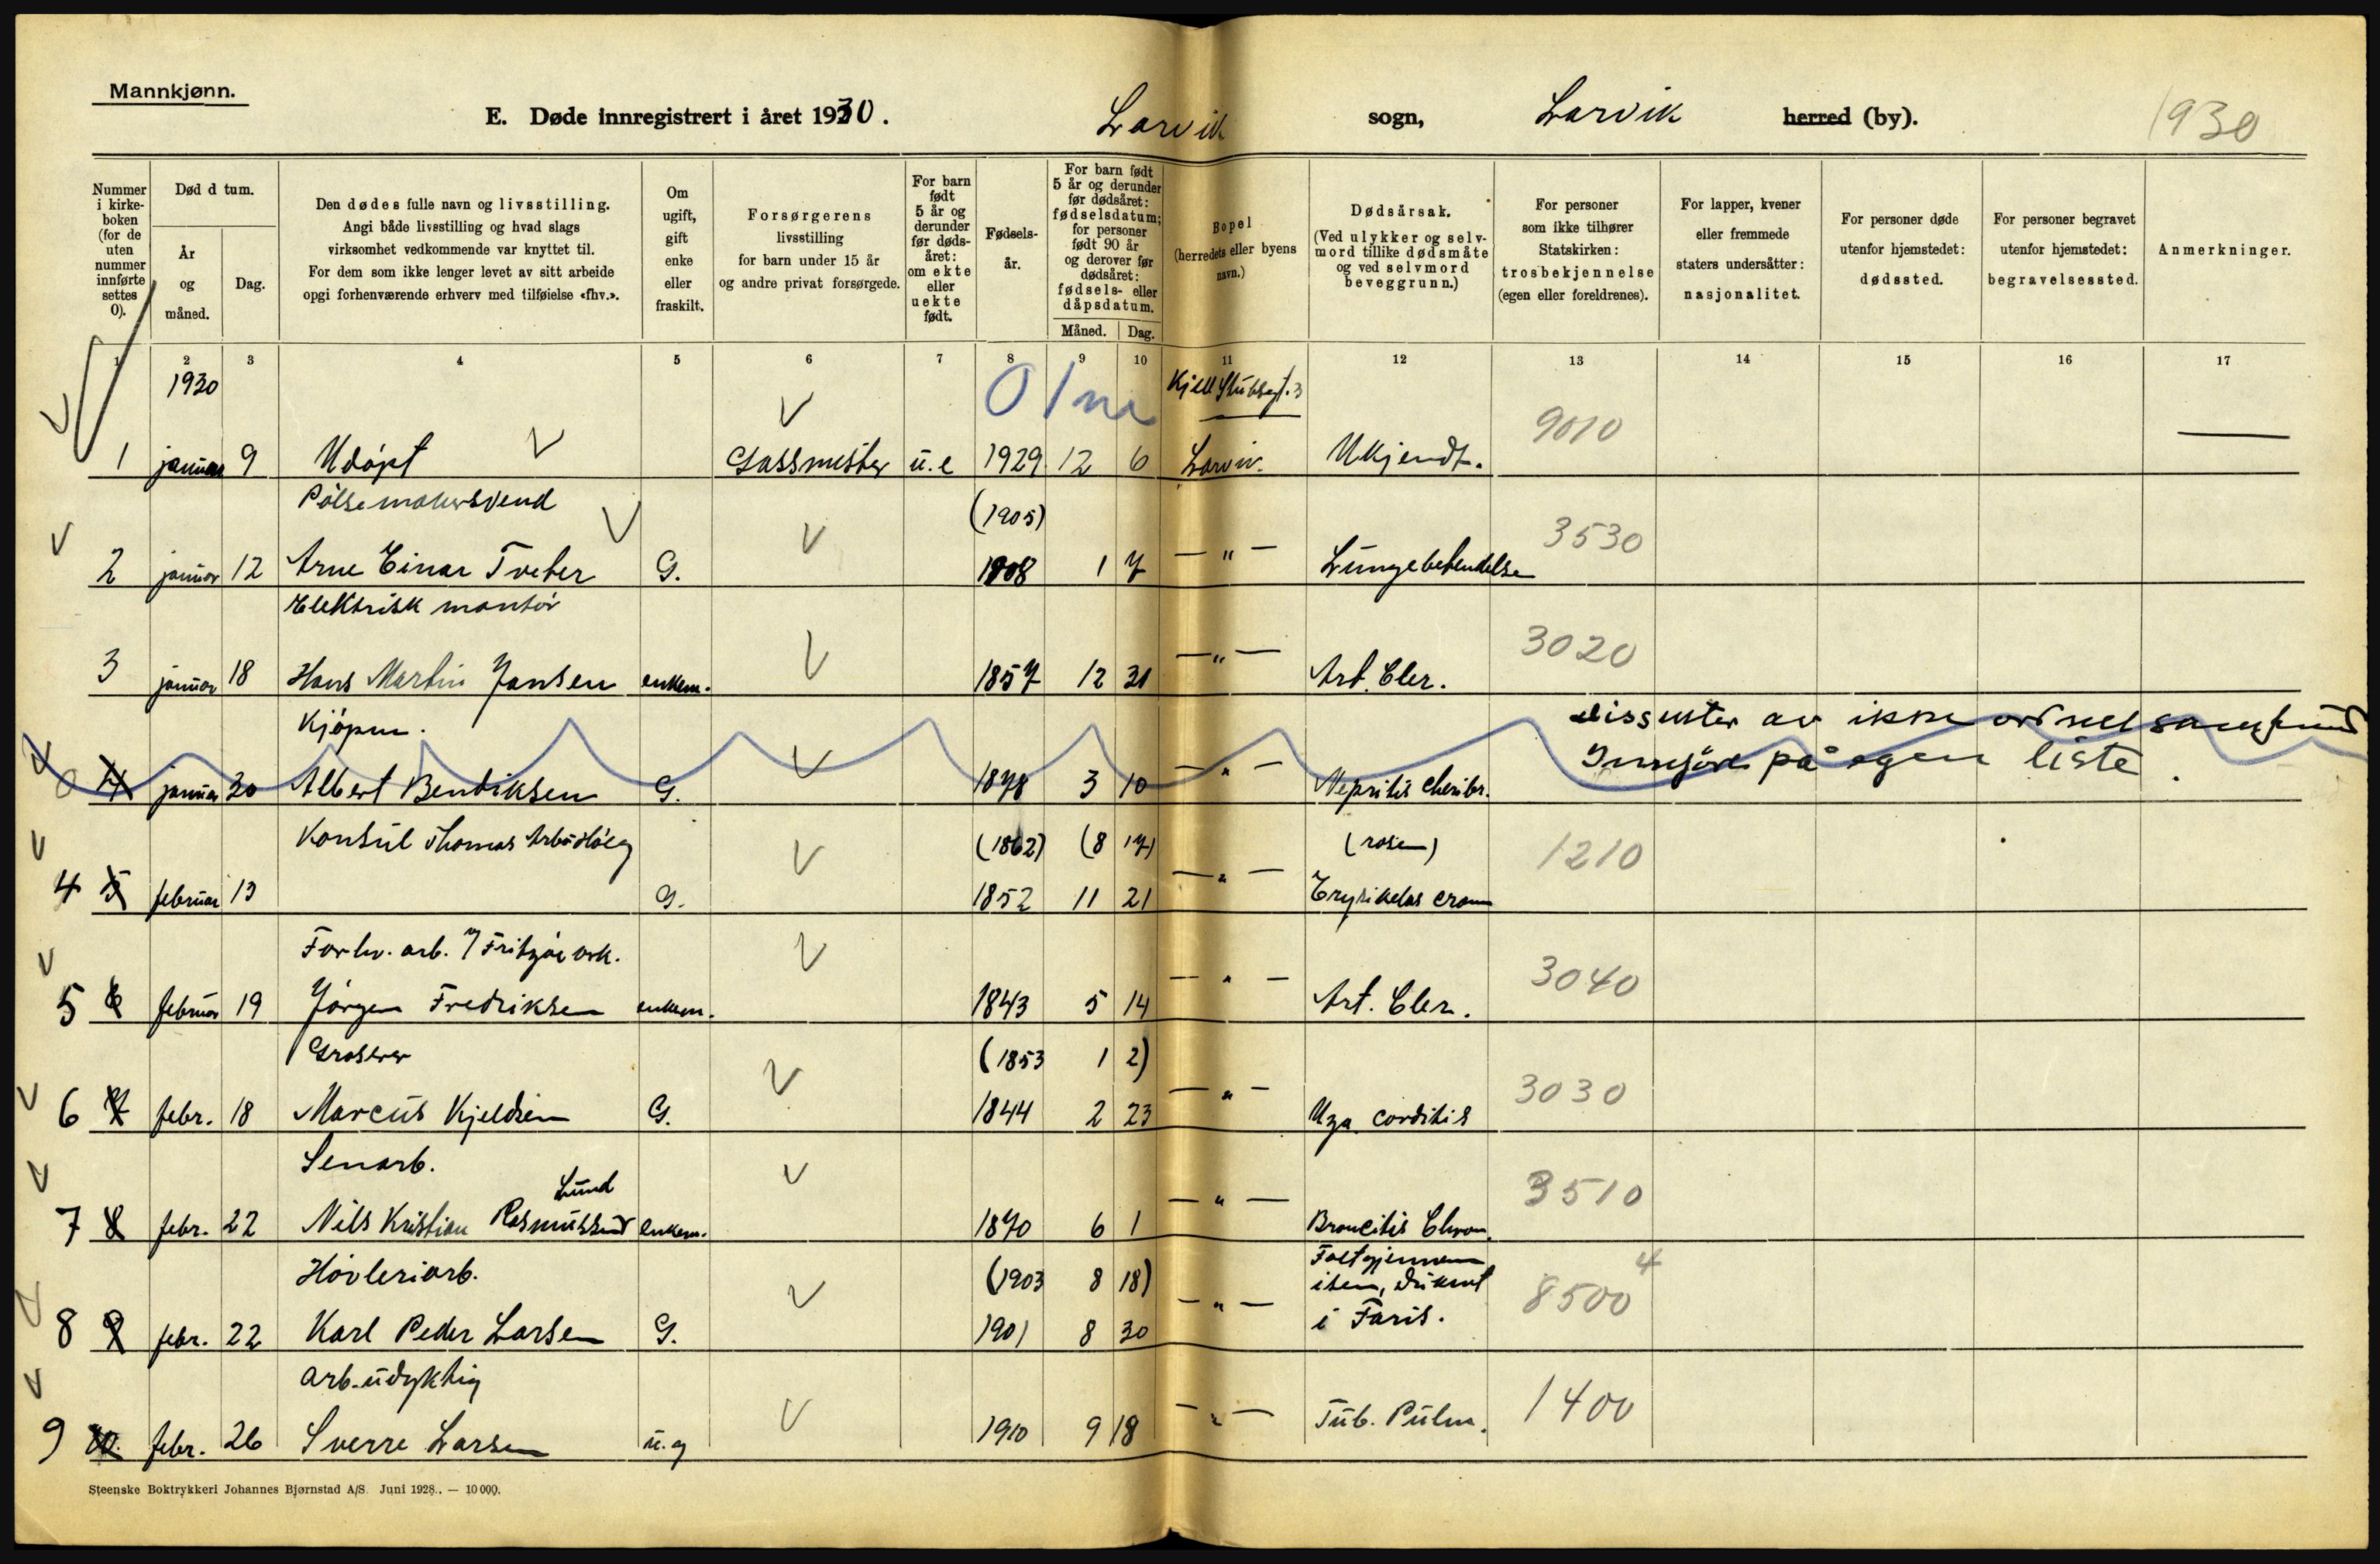 Mannkjønn.
E. Døde innregistrert i året 1930.
Larvik sogn, Larvik herred (by).
1930
Nummer i kirke-boken (for de uten nummer innførte settes 0).
Død d tum.
År og måned.
Dag.
Den dødes fulle navn og livsstilling.
Angi både livsstilling og hvad slags
virksomhet vedkommende var knyttet til.
For dem som ikke lenger levet av sitt arbeide
opgi forhenværende erhverv med tilføielse «fhv.».
Om ugift, gift enke eller fraskilt.
Forsørgerens livsstilling for barn under 15 år og andre privat forsørgede.
For barn født 5 år og derunder før døds-året: om ekte eller uekte født.
Fødsels-år.
For barn født 5 år og derunder før dødsåret: fødselsdatum; for personer født 90 år og derover før dødsåret: fødsels- eller dåpsdatum.
Måned. Dag.
Bopel (herredets eller byens navn.)
Dødsårsak. (Ved ulykker og selv-mord tillike dødsmåte og ved selvmord beveggrunn.)
For personer som ikke tilhører Statskirken: trosbekjennelse (egen eller foreldrenes).
For lapper, kvener eller fremmede staters undersåtter: nasjonalitet.
For personer døde utenfor hjemstedet: dødssted.
For personer begravet utenfor hjemstedet: begravelsessted.
Anmerkninger.
1 2 3 4 5 6 7 8 9 10 11 12 13 14 15 16 17
1930 0 1 m Kjell Stubsgt. 3
1 januar 9 Udøpt Gassmester u.e 1929 12 6 Larvik Ukjendt. 9010
Pølsemakersvend (1905)
2 januar 12 Arne Einar Tveter G. 1908 1 7 — " — Lungebetendelse 3530
Elektrisk montør
3 januar 18 Hans Martin Jansen enkem. 1857 12 31 — " — Art. Cler. 3020
Kjøpm. dissenter av ikke ordnet samfund
0 4 januar 20 Albert Bendiksen G. 1878 3 10 — " — Innføres på egen liste
Konsul Thomas Arbo Høeg (1862) (8 17) (rosen)
4 5 februar 13 G. 1852 11 21 — " — 1210
Forhv. arb. v/ Fritzøe vrk.
5 6 februar 19 Jørgen Fredriksen enkem. 1843 5 14 — " — Art. Cler. 3040
Grosserer (1853 1 2)
6 7 febr. 18 Marcus Kjeldsen G. 1844 2 23 — " — 3030
Lund
7 8 febr. 22 Nils Kristian Rasmussen enkem. 1870 6 1 — " — Broncitis Chron. 3510
Høvleriarb. (1903 8 18) Falt gjennem
8 9 febr. 22 Karl Peder Larsen G. 1901 8 30 — " — isen, druknet i Faris. 8500 4
arb.udyktig
9 10. febr. 26 Sverre Larsen u.g 1910 9 18 — " — Tub. Pulm. 1400
Steenske Boktrykkeri Johannes Bjørnstad A/S. Juni 1928. — 10 000.